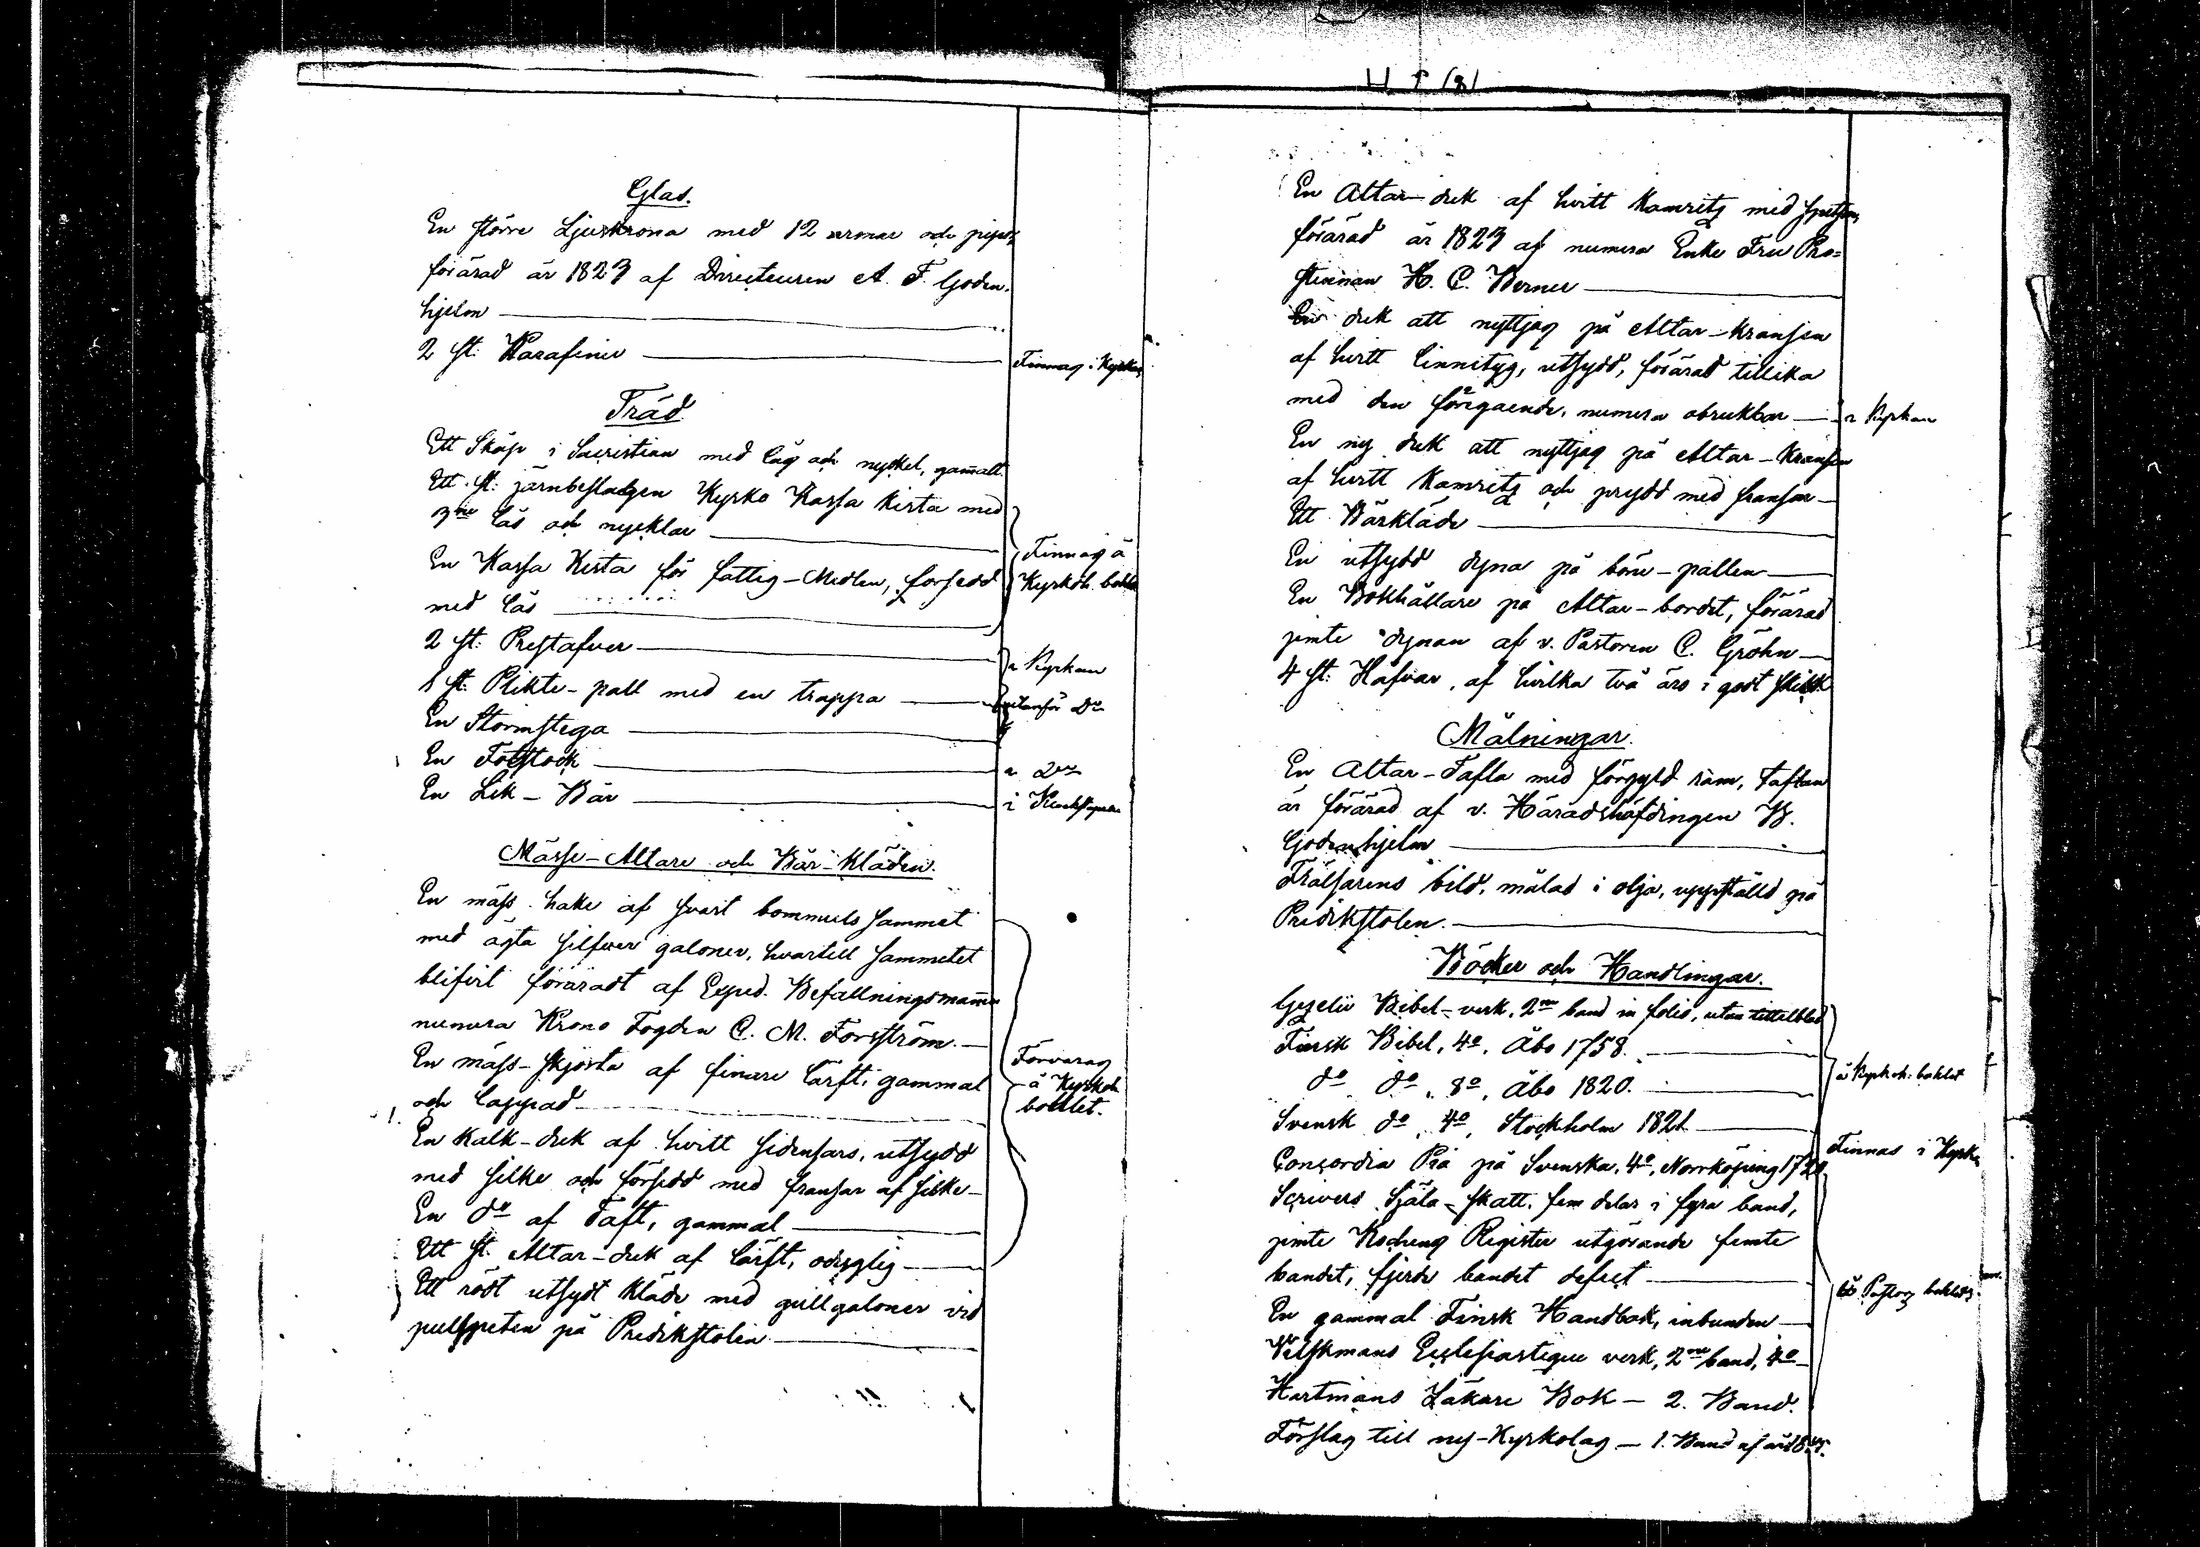 Glas.
En större Ljuskrona med 12 armar och pipor,
förärad år 1823 af Directeuren A. F. Goden-
hjelm
2 st. Karafiner
Finnas i Kyrkan
Träd
Ett Skåp i Sacristian med lås och nyckel, gamalt
Ett st. järnbeslagen Kyrko Kassa Kista med
3ne lås och nycklar
En Kassa Kista för fattig-Medlen, försedd
med lås
Finnas å
Kyrkoh. bohlet
2 st. Prestafver
a Kyrkan
1 st. Plikte-pall med en trappa
utanför Do
En Stormstega
En Fotstock
a Do
En Lik-Bår
i Klockstapeln
Mässe-Altare och Bår-Kläden.
En mäss hake af svart bommuls sammet
med ägta silfver galoner, hvartill sammetet
blifvit föräradt af Exped. Befallningsmannen
numera Krono Fogden C. M. Forsström.
En mäss-skjorta af finare lärft, gammal
och lappad
Förvaras
å Kyrkoh.
bohlet.
En Kalk-duk af hvitt sidensars, utsydd
med silke och försedd med fransar af silke
En do af Taft, gammal
Ett st. Altar-duk af lärft, oduglig
Ett rödt utsydt kläde med gullgaloner vid
pulspeten på Predikstolen
En Altar-duk af hvitt Kamrits med spetsar,
förärad år 1823 af numera Enke Fru Pro-
stinnan H. C. Berner
En duk att nyttjas på Altar-kransen
af hvitt linnetyg, utsydd, förärad tillika
med den föregaende, numera obrukbar
a Kyrkan
En ny duk att nyttjas på Altar-Kransen
af hvitt Kamrits och prydd med fransar
Ett Bårkläde
En utsydd dyna på böne-pallen
En Bokhållare på Altar-bordet, förärad
jemte dynan af v. Pastoren C. Gröhn
4 st. Håfvar, af hvilka två äro i godt skick
Målningar.
En Altar-Tafla med förgyld ram, Taflan
är förärad af v. Häradshöfdingen B.
Godenhjelm
Frälsarens bild, målad i olja, uppställd på
Predikstolen.
Böcker och Handlingar.
Gezelii Bibel-verk, 2ne band in folio, utan tittelblad
Finsk Bibel, 4o, Åbo 1758.
do do, 8o, Åbo 1820.
å Kyrkoh. bohlet
Svensk do, 4o, Stockholm 1821
Concordia Pia på Svenska, 4o, Norrköping 1730,
Finnas i Kyrkan
Scrivers Själa-skatt, fem delar i fyra band,
jemte Register utgörande femte
bandet, fjerde bandet defect
En gammal Finsk Handbok, inbunden
Vilskmans Ecclesiastique verk, 2ne band, 4o
Hartmans Läkare Bok — 2. Band.
Förslag till ny-Kyrkolag — 1. Band af år